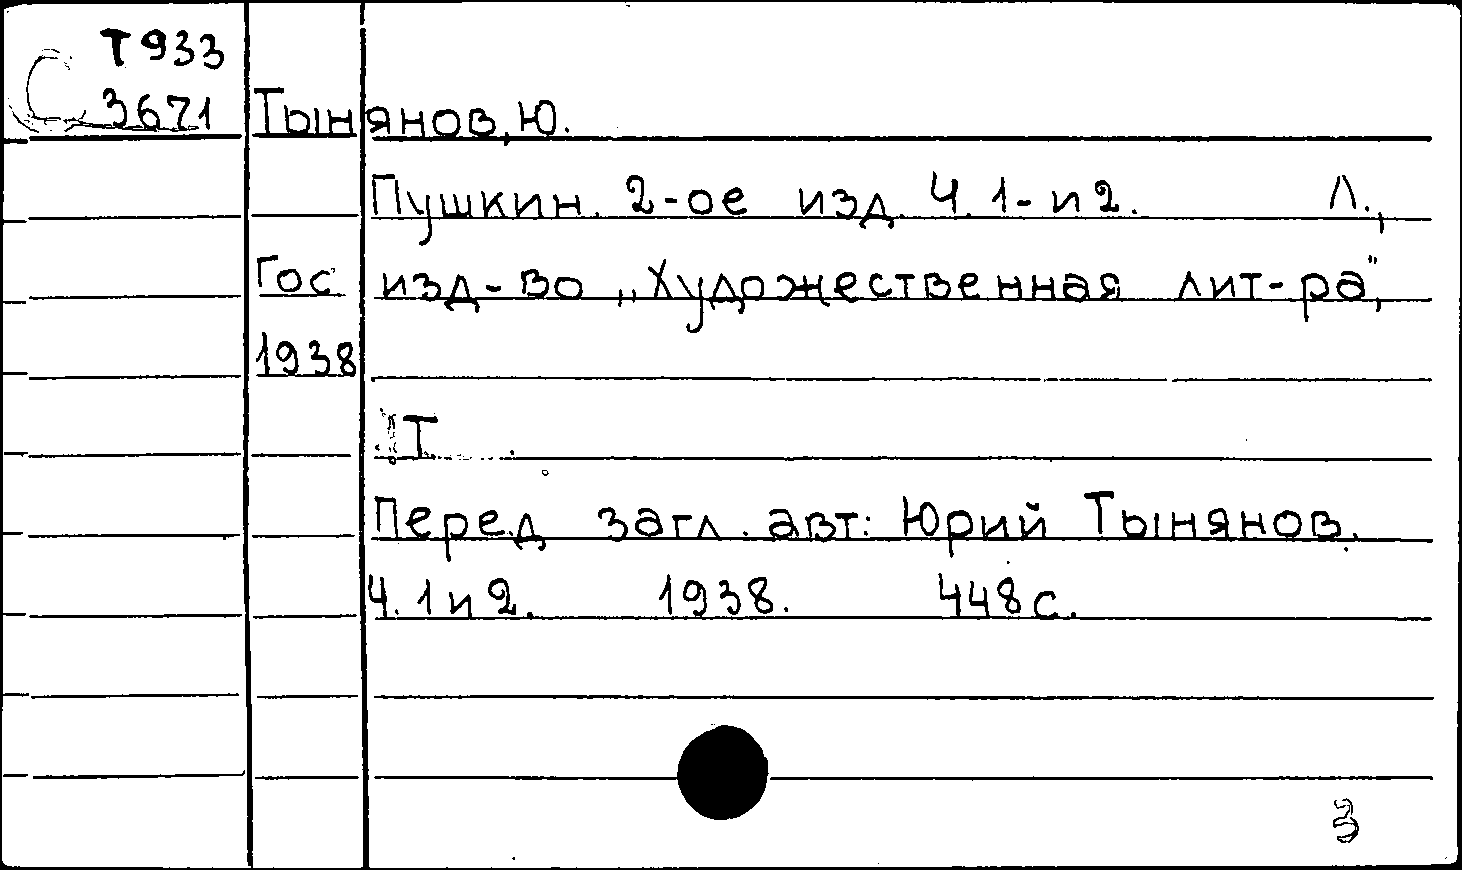 Т933
С 3671 Тынянов, Ю.
Пушкин. 2-ое изд. Ч. 1- и 2. Л.,
Гос изд-во „Художественная лит-ра",
1938
Т
Перед загл. авт: Юрий Тынянов.
Ч. 1 и 2. 1938. 448 с.
3